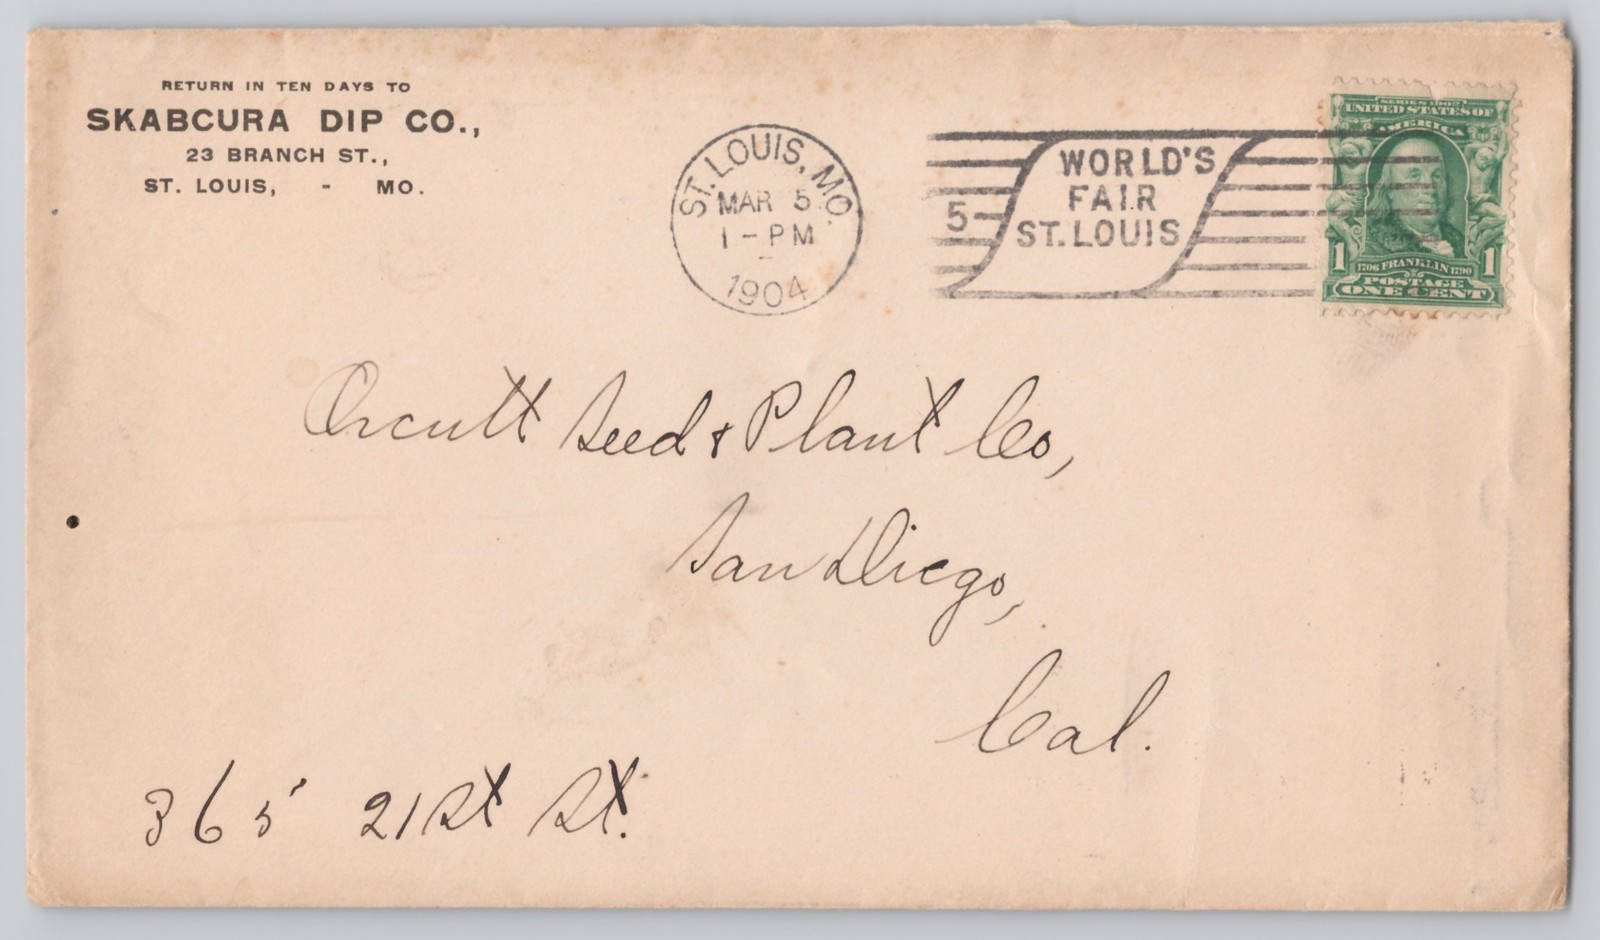 RETURN IN TEN DAYS TO
SKABCURA DIP CO.,
23 BRANCH ST.,
ST. LOUIS, - MO.
ST. LOUIS, MO.
MAR 5
1-PM
1904
5
WORLD'S
FAIR
ST. LOUIS
SERIES 1902
UNITED STATES OF
AMERICA
1 1
1706 FRANKLIN 1790
POSTAGE
ONE CENT
Orcutt Seed & Plant Co,
San Diego,
Cal.
365 21st St.